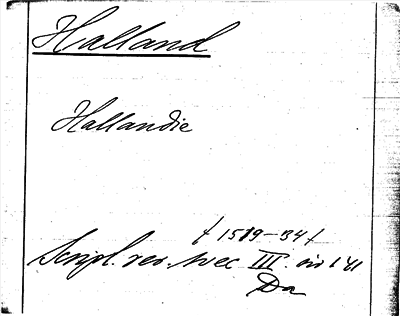 Halland
Hallandie
1519-34
Script. rer. svec III.
Da